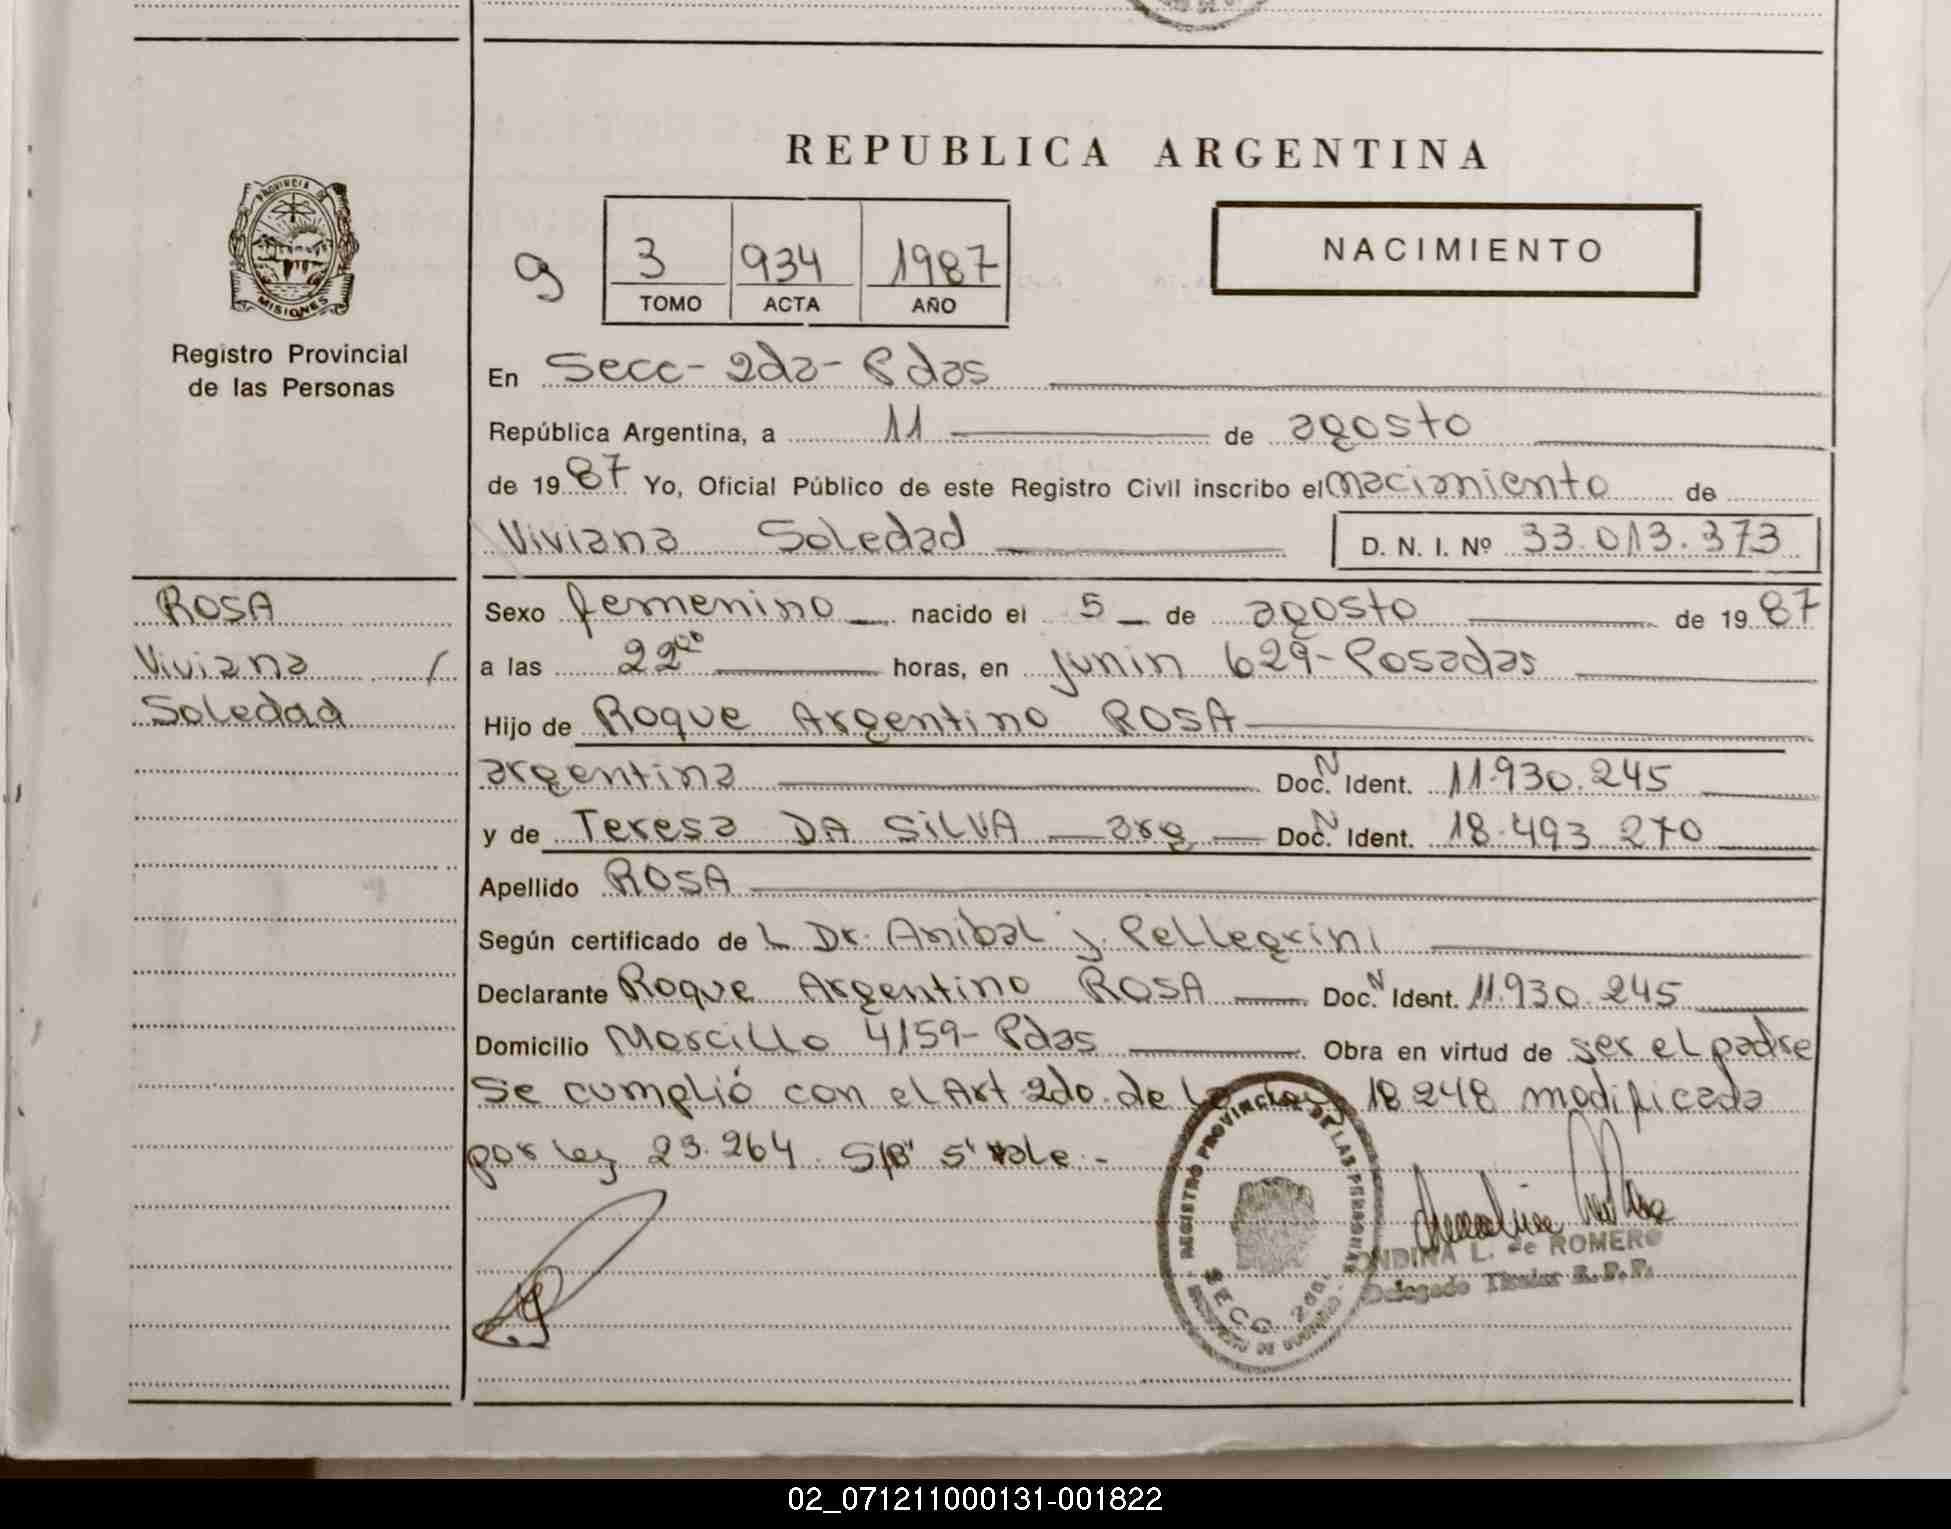 REPUBLICA ARGENTINA
PROVINCIA DE
MISIONES
Registro Provincial
de las Personas
NACIMIENTO
9
3 934 1987
TOMO ACTA AÑO
En Secc- 2da- Pdas
República Argentina, a 11 de agosto
de 1987 Yo, Oficial Público de este Registro Civil inscribo el nacimiento de
Viviana Soledad D. N. I. Nº 33.013.373
ROSA
Viviana /
Soledad
Sexo femenino nacido el 5 de agosto de 1987
a las 22⁰⁰ horas, en junin 629- Posadas
Hijo de Roque Argentino ROSA
argentina Doc. N Ident. 11.930.245
y de Teresa DA SiLVA arg Doc. N Ident. 18.493.270
Apellido ROSA
Según certificado de L Dr. Anibal j. Pellegrini
Declarante Roque Argentino ROSA Doc. N Ident. 11.930.245
Domicilio Morcillo 4159- Pdas Obra en virtud de ser el padre
Se cumplió con el Art 2do. de la Ley 18.248 modificada
por ley 23.264. S/B" 5" vale.-
REGISTRO PROVINCIAL DE LAS PERSONAS
SECC. 2da.
ONDINA L. de ROMERO
Delegado Titular R.P.P.
02_071211000131-001822